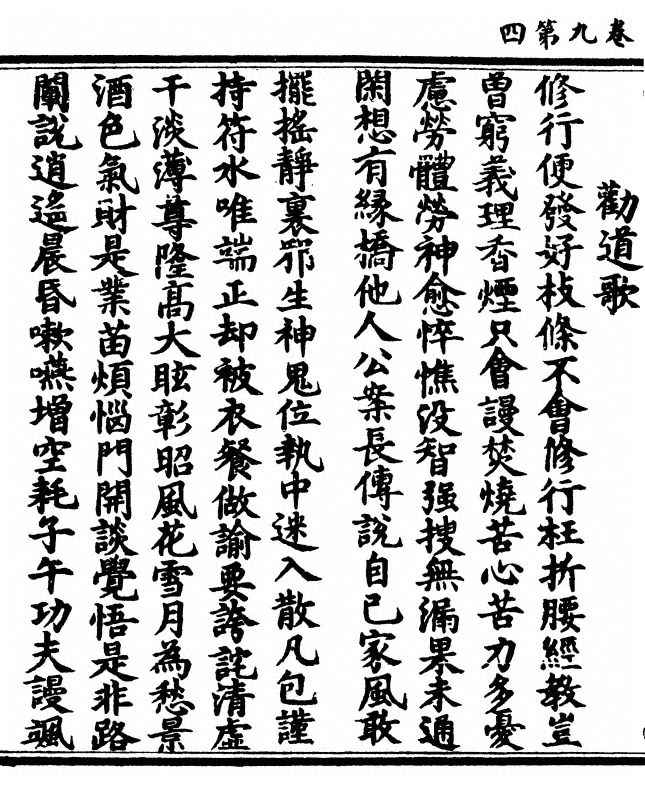 卷九第四
勸道歌
修行便發好枝條不會修行枉折腰經教豈
曾窮義理香煙只會謾焚燒苦心苦力多憂
慮勞體勞神愈悴憔没智强搜無漏果未通
閑想有緣橋他人公案長傳說自己家風敢
擺搖靜裏邪生神鬼位執中迷入散凡包謹
持符水唯端正却被衣餐做諭要誇詫清虛
干淡薄尊隆高大眩彰昭風花雪月為愁景
酒色氣財是業苗煩惱門開談覺悟是非路
闡說逍遙晨昏嗽嚥增空耗子午功夫謾颯